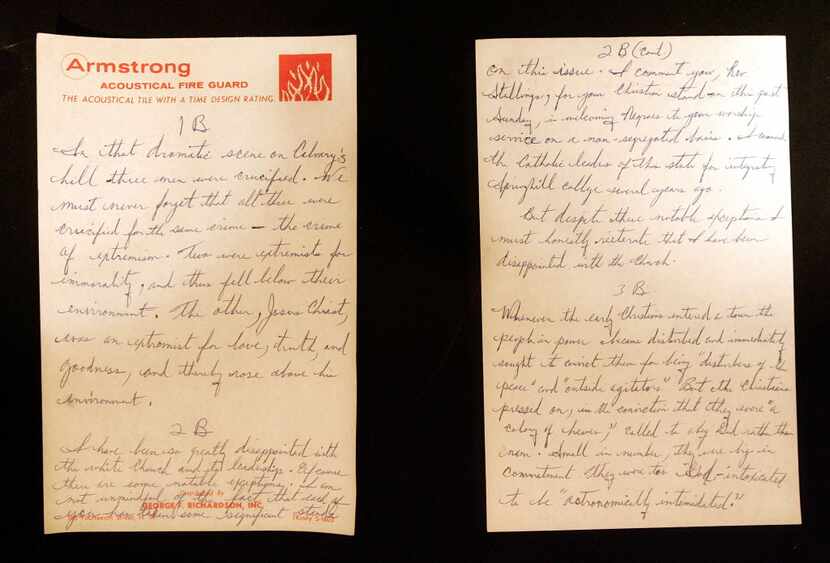 Armstrong
ACOUSTICAL FIRE GUARD
THE ACOUSTICAL TILE WITH A TIME DESIGN RATING
1 B
In that dramatic scene on Calvary's
hill three men were crucified. We
must never forget that all three were
crucified for the same crime — the crime
of extremism. Two were extremists for
immorality, and thus fell below their
environment. The other, Jesus Christ,
was an extremist for love, truth, and
goodness, and thereby rose above his
environment.
2 B
I have been so greatly disappointed with
the white Church and its leadership. Of course
there are some notable exceptions. I am
not unmindful of the fact that each of
you has taken some significant stands
GEORGE F. RICHARDSON, INC.
2 B (cont)
on this issue. I commend you, Rev
Stallings, for your Christian stand on this past
Sunday, in welcoming Negroes to your worship
service on a non-segregated basis. I commend
the Catholic leaders of this state for integrating
Springhill college several years ago.
But despite these notable exceptions I
must honestly reiterate that I have been
disappointed with the Church.
3 B
Whenever the early Christians entered a town the
people in power became disturbed and immediately
sought to convict them for being "disturbers of the
peace" and "outside agitators". But the Christians
pressed on, in the conviction that they were "a
colony of heaven," called to obey God rather than
man. Small in number, they were big in
commitment. They were too God-intoxicated
to be "astronomically intimidated."